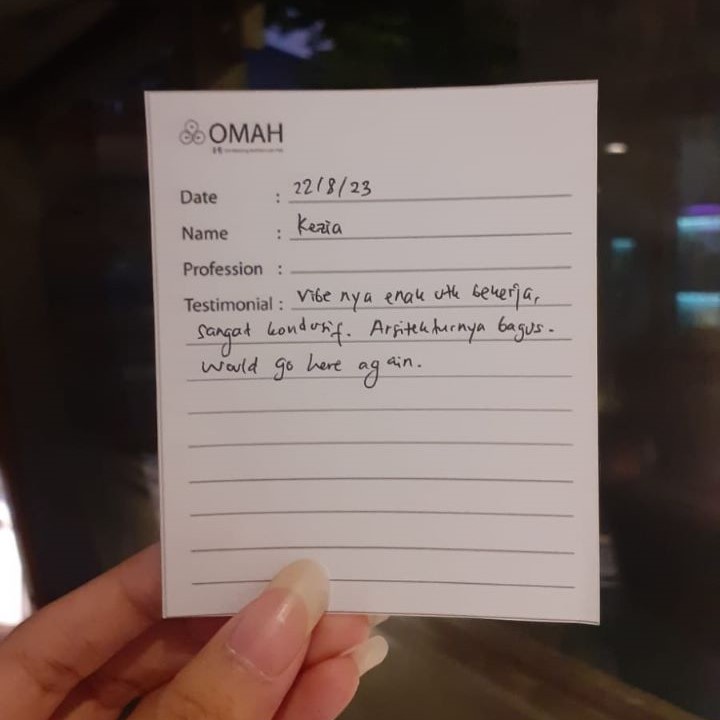 OMAH
Date : 22/8/23
Name : Kezia
Profession :
Testimonial : Vibe nya enak utk bekerja,
sangat kondusif. Arsitekturnya bagus.
Would go here again.